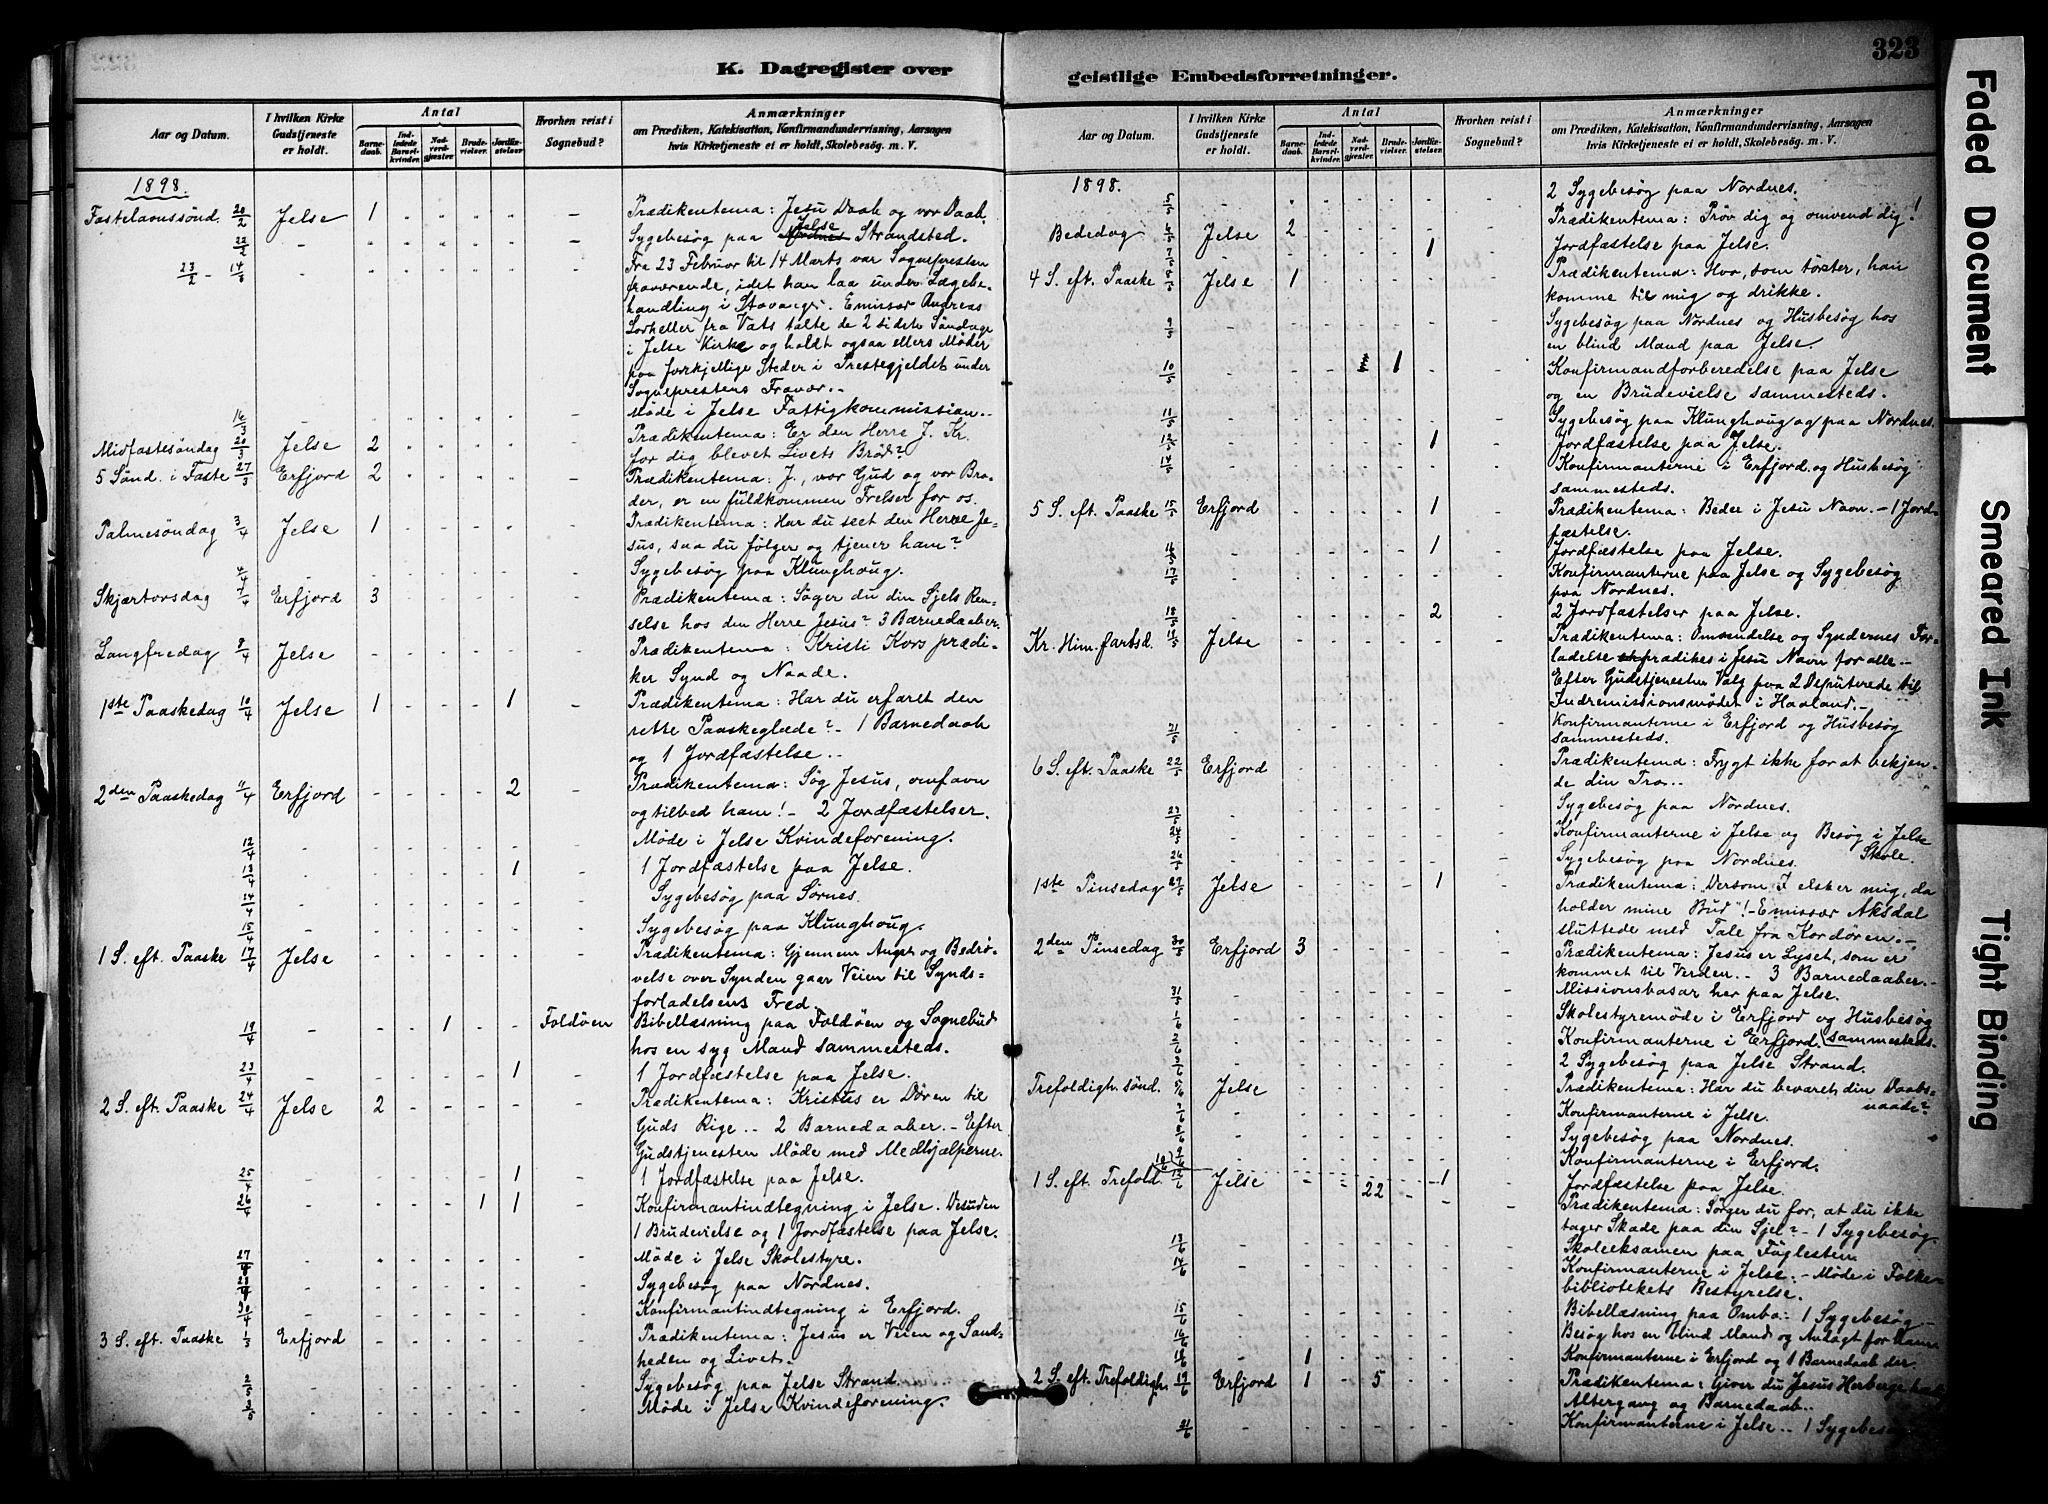 K. Dagregister over
Aar og Datum.
I hvilken Kirke Gudstjeneste er holdt.
Antal
Barnedaab.
Indledede Barselkvinder.
Nadverdgjester.
Brudevielser.
Jordfæstelser.
Hvorhen reist i Sognebud?
Anmærkninger
om Prædiken, Katekisation, Konfirmandundervisning, Aarsagen
hvis Kirketjeneste ei er holdt, Skolebesøg. m. V.
1898.
Fastelavnssønd. 20/2 Jelse 1 " " " " - Prædikentema: Jesu Daab og vor Daab.
22/2 - " " " " " - Sygebesøg paa Jelse Strandsted.
23/2 - 14/3 - " " " " " - Fra 23 Februar til 14 Marts var Sognepresten
fraværende, idet han laa under Lægebe-
handling i Stavanger. Emissær Andreas
Lorkeller fra Vats talte de 2 sidste Søndage
i Jelse Kirke og holdt ogsaa ellers Møder
paa forskjellige Steder i Prestegjeldet under
Sogneprestens Fravær.-
16/3 - - Møde i Jelse Fattigkommission..
Midfastesøndag 20/3 Jelse 2 " " " " - Prædikentema: Er den Herre J. Kr.
for dig blevet Livets Brød?
5 Sønd. i Faste 27/3 Erfjord 2 - Prædikentema: J., vor Gud og vor Bro-
der, er en fuldkommen Frelser for os.
Palmesøndag 3/4 Jelse 1 - - - - - Prædikentema: Har du seet den Herre Je-
sus, saa du følger og tjener ham?
4/4 - - - - - - - Sygebesøg paa Klunghoug.
Skjærtorsdag 7/4 Erfjord 3 - - - - - Prædikentema: Søger du din Sjels Ren-
selse hos den Herre Jesus? 3 Barnedaaber.
Langfredag 8/4 Jelse - - - - - - Prædikentema: Kristi Kors prædi-
ker Synd og Naade.
1ste Paaskedag 10/4 Jelse 1 - - - 1 - Prædikentema: Har du erfaret den
rette Paaskeglæde? - 1 Barnedaab
og 1 Jordfæstelse..
2den Paaskedag 11/4 Erfjord - - - - 2 - Prædikentema: Søg Jesus, omfavn
og tilbed ham! - 2 Jordfæstelser.
12/4 - - - - - - - Møde i Jelse Kvindeforening.
13/4 - - - - - 1 - 1 Jordfæstelse paa Jelse.
14/4 - - - - - - - Sygebesøg paa Sørnes.
15/4 - - - - - - - Sygebesøg paa Klunghoug.
1 S. eft. Paaske 17/4 Jelse - - - - - - Prædikentema: Gjennem Angst og Bedrø-
velse over Synden gaar Veien til Synds-
forladelsens Fred.
19/4 - - - 1 - - Foldøen Bibellæsning paa Foldøen og Sognebud
hos en syg Mand sammesteds.
23/4 - - - - - 1 - 1 Jordfæstelse paa Jelse.
2 S. eft. Paaske 24/4 Jelse 2 - - - - - Prædikentema: Kristus er Døren til
Guds Rige.. - 2 Barnedaaber. - Efter
Gudstjenesten Møde med Medhjælperne.
25/4 - - - - - 1 - 1 Jordfæstelse paa Jelse.
26/4 - - - - 1 1 - Konfirmantindtegning i Jelse. Desuden
1 Brudevielse og 1 Jordfæstelse paa Jelse.
27/4 - - - - - - - Møde i Jelse Skolestyre.
28/4 - - - - - - - Sygebesøg paa Nordnes.
30/4 - - - - - - - Konfirmantindtegning i Erfjord.
3 S. eft. Paaske 1/5 Erfjord - - - - - - Prædikentema: Jesus er Veien og Sand-
heden og Livet.
2/5 - - - - - - - Sygebesøg paa Jelse Strand.
3/5 - - - - - - - Møde i Jelse Kvindeforening.
geistlige Embedsforretninger.
323
Aar og Datum.
I hvilken Kirke Gudstjeneste er holdt.
Antal
Barnedaab.
Indledede Barselkvinder.
Nadverdgjester.
Brudevielser.
Jordfæstelser.
Hvorhen reist i Sognebud?
Anmærkninger
om Prædiken, Katekisation, Konfirmandundervisning, Aarsagen
hvis Kirketjeneste ei er holdt, Skolebesøg. m. V.
1898.
5/5 - - - - - - - 2 Sygebesøg paa Nordnes.
Bededag 6/5 Jelse 2 - - - - - Prædikentema: Prøv dig og omvend dig!
7/5 - - - - - 1 - Jordfæstelse paa Jelse.
4 S. eft. Paaske 8/5 Jelse 1 - - - - - Prædikentema: Hvo, som tørster, han
komme til mig og drikke.
9/5 - - - - - - - Sygebesøg paa Nordnes og Husbesøg hos
en blind Mand paa Jelse.
10/5 - - - 1 - - Konfirmandforberedelse paa Jelse
og en Brudevielse sammesteds.
11/5 - - - - - - - Sygebesøg paa Klunghoug og paa Nordnes.
13/5 - - - - - 1 - Jordfæstelse paa Jelse.
14/5 - - - - - - - Konfirmanterne i Erfjord og Husbesøg
sammesteds.
5 S. eft. Paaske 15/5 Erfjord - - - - 1 - Prædikentema: Beder i Jesu Navn. - 1 Jord-
fæstelse.
16/5 - - - - - 1 - Jordfæstelse paa Jelse.
17/5 - - - - - - - Konfirmanterne paa Jelse og Sygebesøg
paa Nordnes.
18/5 - - - - - 2 - 2 Jordfæstelser paa Jelse.
Kr. Him.fartsd. 19/5 Jelse - - - - - - Prædikentema: Omvendelse og Syndernes For-
ladelse prædikes i Jesu Navn for alle.-
Efter Gudstjenesten Valg paa 2 Deputerede til
Indremissionsmødet i Havland.-
21/5 - - - - - - - Konfirmanterne i Erfjord og Husbesøg
sammesteds.
6 S. eft. Paaske 22/5 Erfjord - - - - - - Prædikentema: Frygt ikke for at bekjen-
de din Tro..
23/5 - - - - - - - Sygebesøg paa Nordnes.
24/5 - - - - - - - Konfirmanterne i Jelse og Besøg i Jelse
Skole.
26/5 - - - - - - - Sygebesøg paa Nordnes.
1ste Pinsedag 29/5 Jelse - - - - 1 - Prædikentema: Dersom I elsker mig, da
holder mine Bud"! - Emissær Aksdal
sluttede med Tale fra Kordøren.-
2den Pinsedag 30/5 Erfjord 3 - - - - - Prædikentema: Jesus er Lyset, som er
kommet til Verden.. 3 Barnedaaber.-
31/5 - - - - - - - Missionsbasar her paa Jelse.
1/6 - - - - - - - Skolestyremøde i Erfjord og Husbesøg
sammesteds.
2/6 - - - - - - - Konfirmanterne i Erfjord.
3/6 - - - - - - - 2 Sygebesøg paa Jelse Strand.
Trefoldigh. sønd. 5/6 Jelse - - - - - - Prædikentema: Har du bevaret din Daabs-
naade?
7/6 - - - - - - - Konfirmanterne i Jelse.
8/6 - - - - - - - Sygebesøg paa Nordnes.
9/6 - - - - - - - Konfirmanterne i Erfjord.
10/6 - - - - - 1 - Jordfæstelse paa Jelse.
1 S. eft. Trefold. 12/6 Jelse - - 22 - - - Prædikentema: Sørger du for, at du ikke
tager Skade paa din Sjel? - 1 Sygebesøg.
13/6 - - - - - - - Skoleeksamen paa Fuglesten.
14/6 - - - - - - - Konfirmanterne i Jelse. - Møde i Folke-
bibliotekets Bestyrelse.
15/6 - - - - - - - Bibellæsning paa Ombo: 1 Sygebesøg.-
16/6 - - - - - - - Besøg hos en blind Mand og Andagt for ham.
18/6 - 1 - - - - - Konfirmanterne i Erfjord og 1 Barnedaab der.
2 S. eft. Trefoldigh. 19/6 Erfjord 1 - 5 - - - Prædikentema: Giver du Jesus Herberge
Altergang og Barnedaab..
21/6 - - - - - - - Konfirmanterne i Jelse.. 1 Sygebesøg
Faded Document
Smeared Ink
Tight Binding